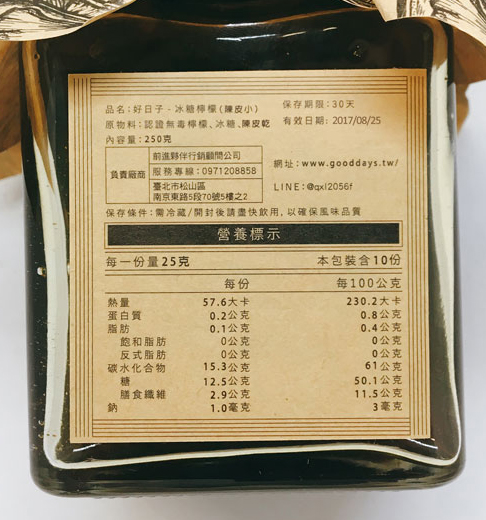 品名：好日子 - 冰糖檸檬(陳皮小)
保存期限：30天
原物料：認證無毒檸檬、冰糖、陳皮乾
有效日期: 2017/08/25
內容量：250克
負責廠商
前進夥伴行銷顧問公司
服務專線：0971208858
臺北市松山區
南京東路5段70號5樓之2
網址：www.gooddays.tw/
LINE：@qxl2056f
保存條件：需冷藏/開封後請盡快飲用, 以確保風味品質
營養標示
每一份量25克 本包裝含10份
每份 每100公克
熱量 57.6大卡 230.2大卡
蛋白質 0.2公克 0.8公克
脂肪 0.1公克 0.4公克
飽和脂肪 0公克 0公克
反式脂肪 0公克 0公克
碳水化合物 15.3公克 61公克
糖 12.5公克 50.1公克
膳食纖維 2.9公克 11.5公克
鈉 1.0毫克 3毫克